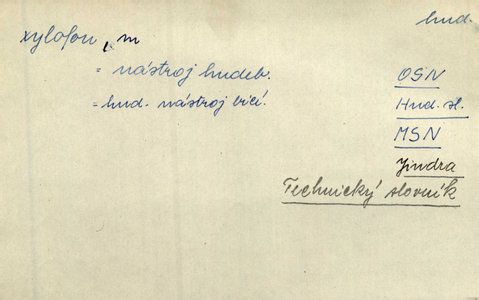 hud.
xylofon, m
= nástroj hudeb.
= hud. nástroj bicí.
OSN
Hud. sl.
MSN
Jindra
Technický slovník